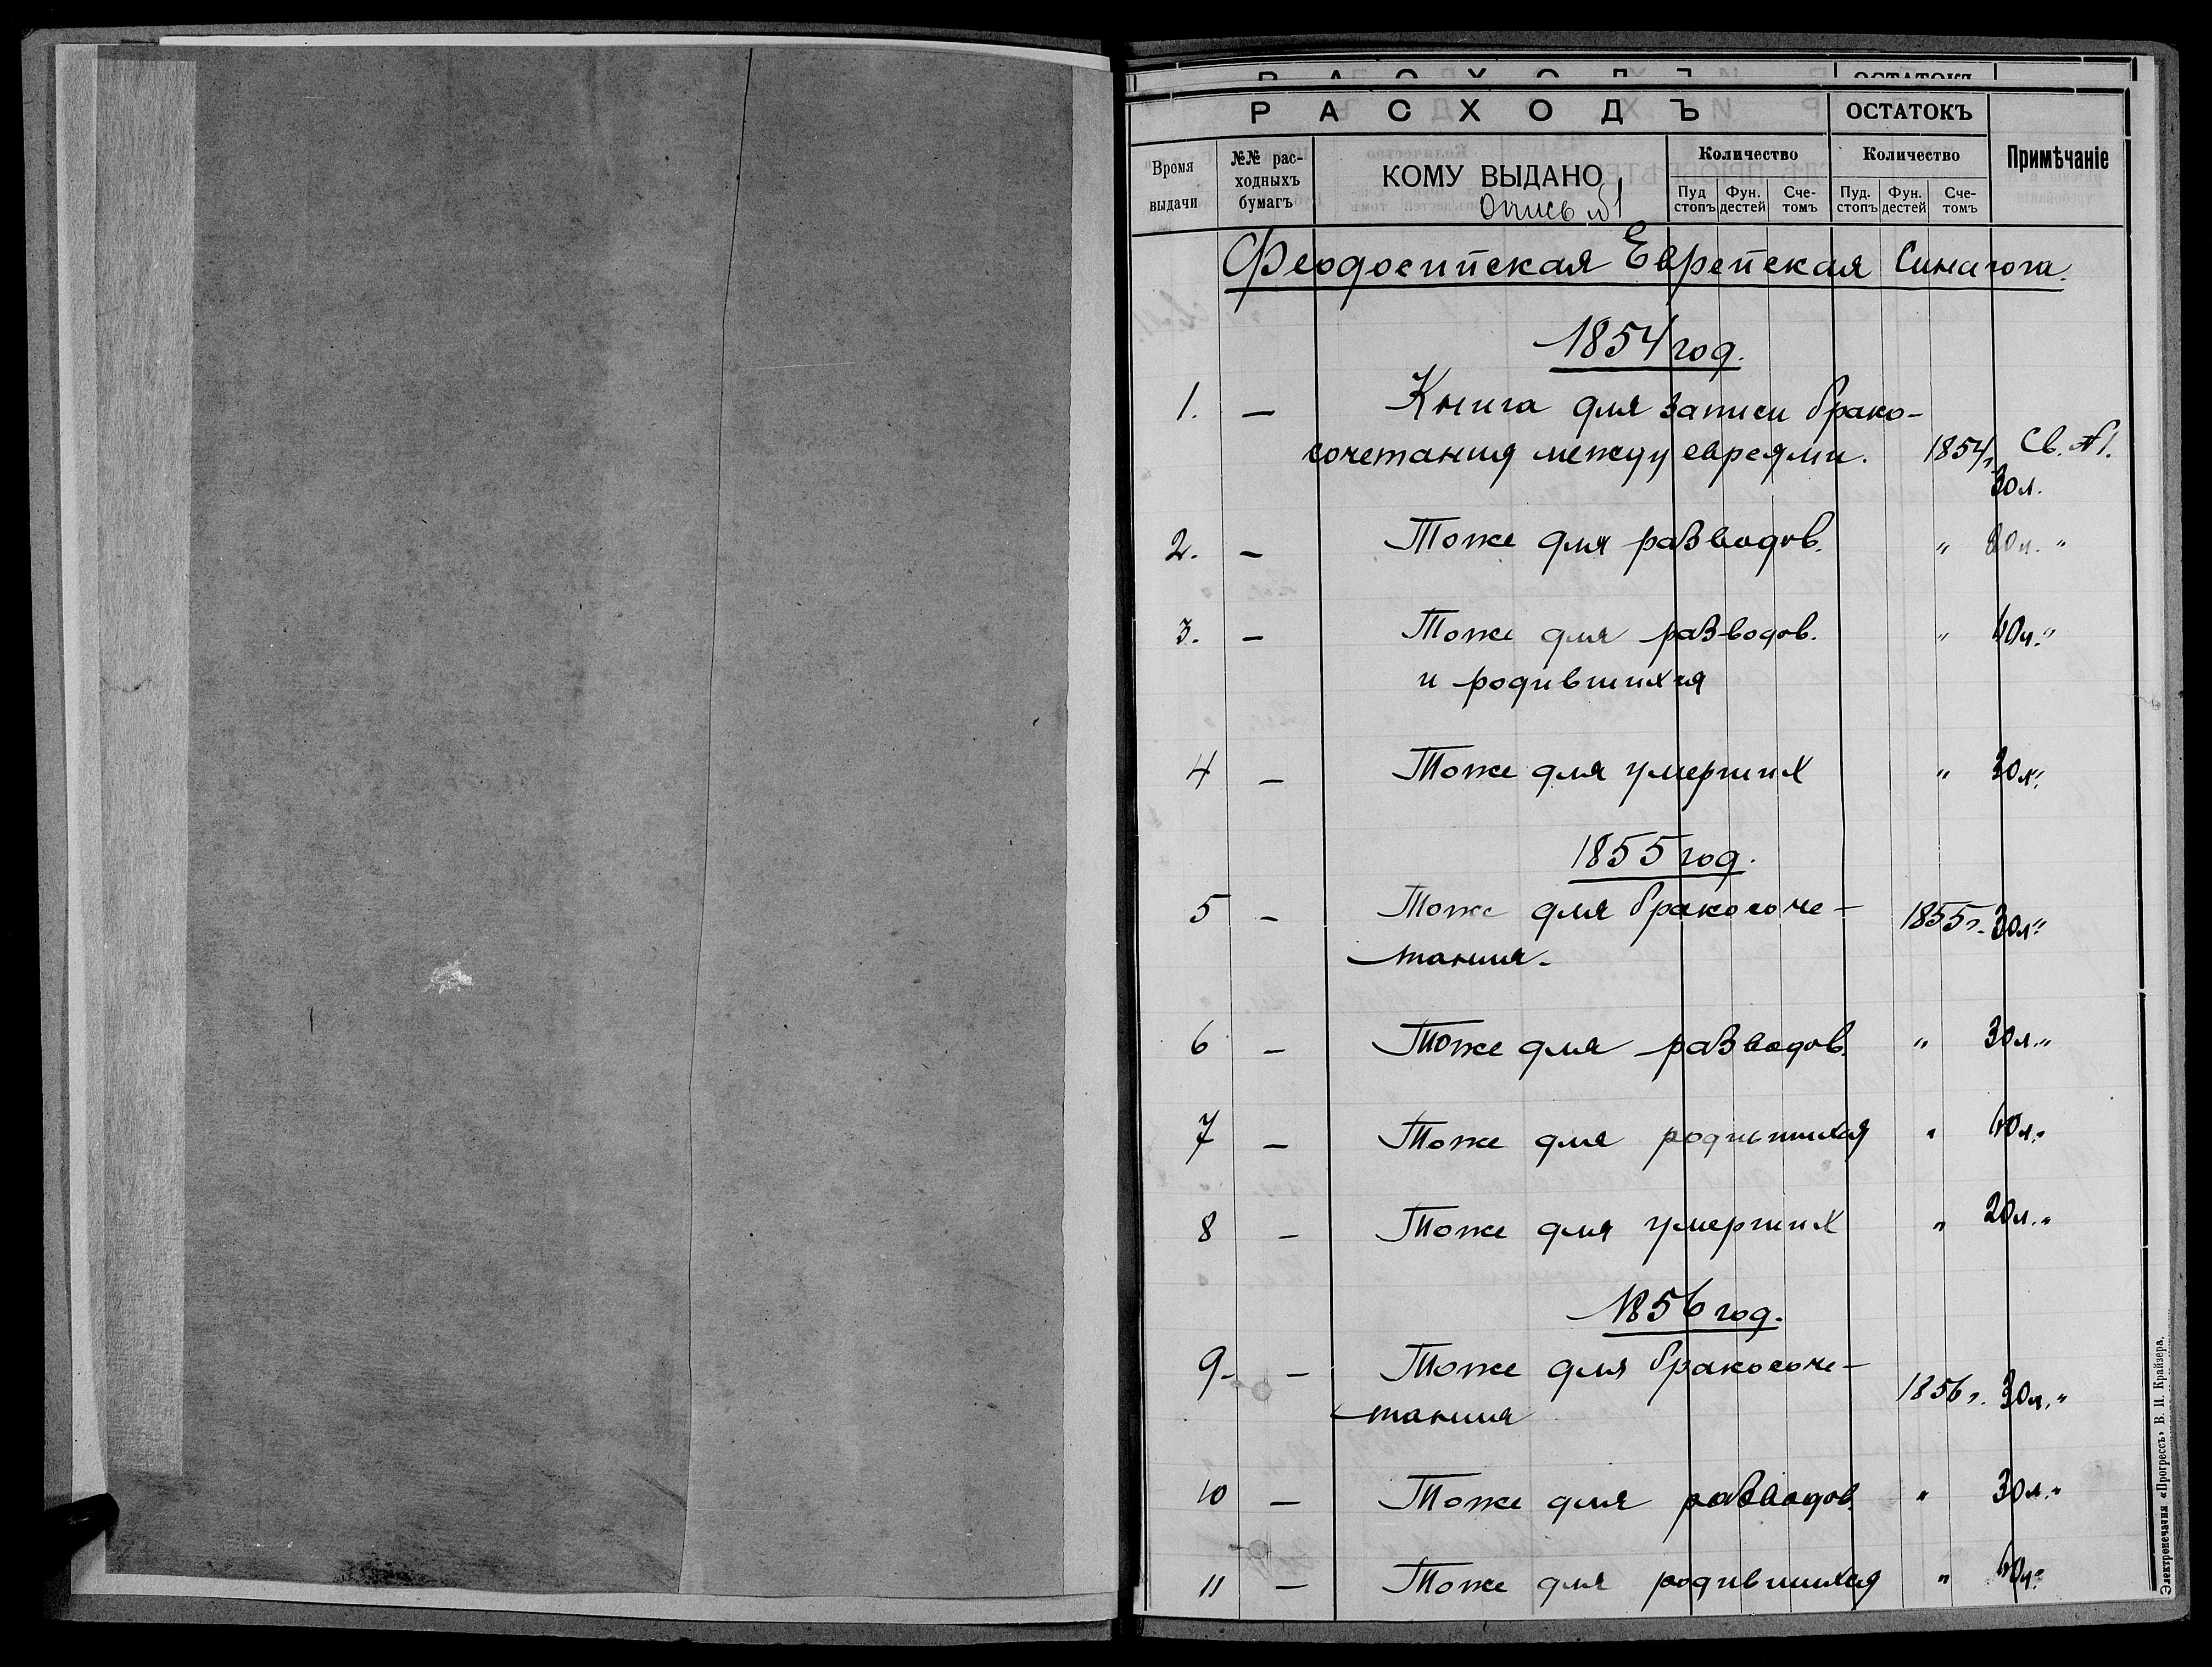 РАСХОДЪ ОСТАТОКЪ
Время выдачи №№ рас-ходныхъ бумагъ КОМУ ВЫДАНО Количество Количество Примѣчаніе
Пуд стопъ Фун. дестей Сче-томъ Пуд. стопъ Фун. дестей Сче-томъ
Опись №1
Феодосийская Еврейская Синагога.
1854 год.
1. — Книга для записи брако-
сочетания между евреями. 1854 г. Св. №1.
30 л.
2. — Тоже для разводов. " "
3. — Тоже для разводов. " 40 л. "
и родившихся
4 — Тоже для умерших " 30 л. "
1855 год.
5 — Тоже для бракосоче- 1855 г. 30 л. "
тания.
6 — Тоже для разводов. " 30 л. "
7 — Тоже для родившихся " 40 л. "
8 — Тоже для умерших " 20 л. "
1856 год.
9. — Тоже для бракосоче-
тания 1856 г. 30 л. "
10 — Тоже для разводов. " 30 л. "
11 — Тоже для родившихся " 40 л. "
Электропечатня «Прогрессъ» В. И. Крайзера.